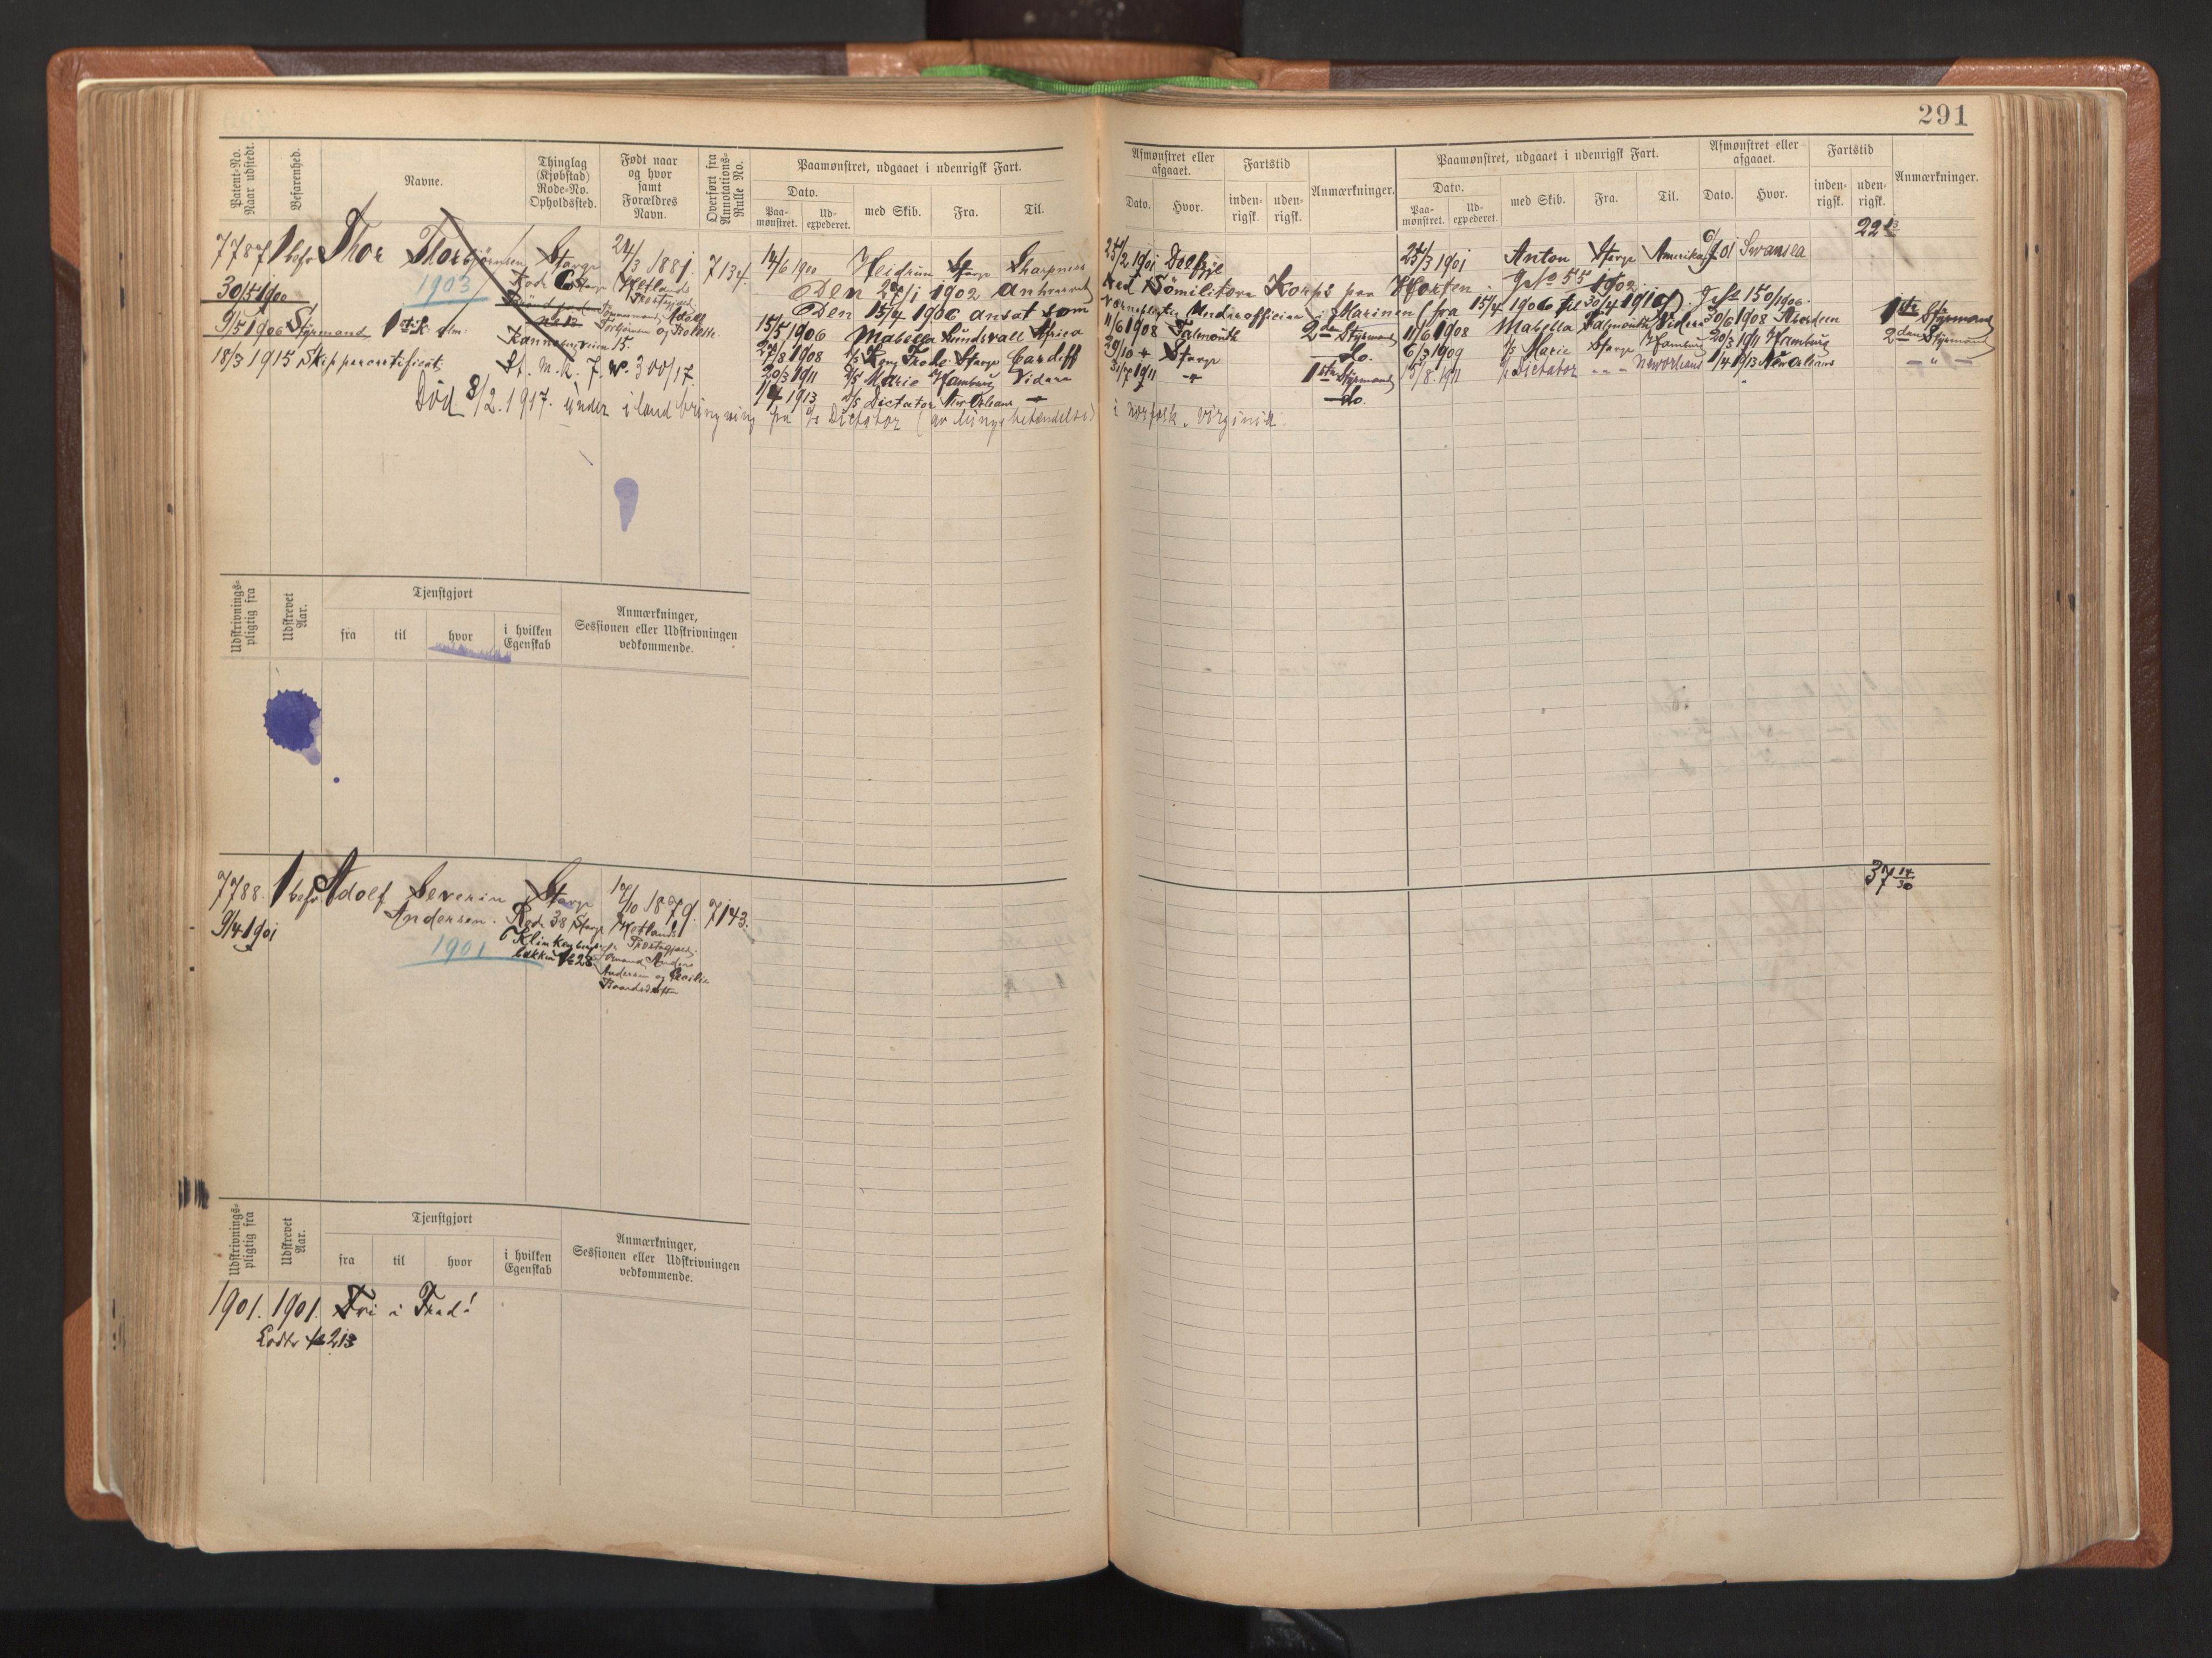 291
Patent-No.
Naar udstedt.
Befarenhed.
Navne.
Thinglag
(Kjøbstad)
Rode-No.
Opholdssted.
Født naar
og hvor
samt
Forældres
Navn.
Overført fra
Annotations-
Rulle No.
Paamønstret, udgaaet i udenrigsk Fart.
Dato.
Paa-
mønstret.
Ud-
expederet.
med Skib.
Fra.
Til.
Afmønstret eller
afgaaet.
Dato.
Hvor.
Fartstid
inden-
rigsk.
uden-
rigsk.
Anmærkninger.
Paamønstret, udgaaet i udenrigsk Fart.
Dato.
Paa-
mønstret.
Ud-
expederet.
med Skib.
Fra.
Til.
Afmønstret eller
afgaaet.
Dato.
Hvor.
Fartstid
inden-
rigsk.
uden-
rigsk.
Anmærkninger.
7787 1 bef. Thor Thorbjörnsen Stavgr 24/3 1881. 7134.
30/5 1900
1903
Hetlands
Prestegjæld
9/5 1906 Styrmand
Rannebergveien 15.
18/3 1915 Skippercertificat.
St. M. k. 7. No. 300/17
14/6 1900 Heidrun Stavgr Sharpness 25/2 1901 Delfzje
25/3 1901 Anton Stavgr Amerika 01 Swansea
Den 27/1 1902 Antraadt ved Sömilitære Korps paa Horten. 1902
Den 15/4 1906 ansat som Værnepligtig Underofficier i Marinen (fra 15/4 1906 til 30/4 1910). 150/1906
15/5 1906 Mabella Sundsvall Africa 11/6 1908 Falmouth 2den Styrmand
11/6 1908 Mabella Falmouth 30/6 1908 Aberdeen 1ste Styrmand
8 1908 D/S Kong Frode Stavgr Cardiff 29/10 Stavgr do.
6/3 1909 D/S Marie Stavgr Hamburg 20/3 1911 Hamburg 2den Styrmand
20/3 1911 D/S Marie Hamburg Videre 31/7 1911 1ste Styrmand
5/8 1911 D/S Dictator New Orleans 1/4 1913 New Orleans
1/4 1913 D/S Dictator New Orleans do.
Død 8/2. 1917. under ilandbringning fra D/S Dictator (av lungebetændelse) i Norfolk, Virginia.
Udskrivnings-
pligtig fra
Udskrevet
Aar.
Tjenstgjort
fra
til
hvor
i hvilken
Egenskab
Anmærkninger,
Sessionen eller Udskrivningen
vedkommende.
7788. 1 bef. Adolf Severin Stavgr 10 1879. 7143.
Andersen. Rode 38 Stavgr Hetlands
9/4 1901
Prestegjæld
1901
Andersen og Cecilie
37 14/30
Udskrivnings-
pligtig fra
Udskrevet
Aar.
Tjenstgjort
fra
til
hvor
i hvilken
Egenskab
Anmærkninger,
Sessionen eller Udskrivningen
vedkommende.
1901. 1901. Fri i Fred!
Lodtr No 213